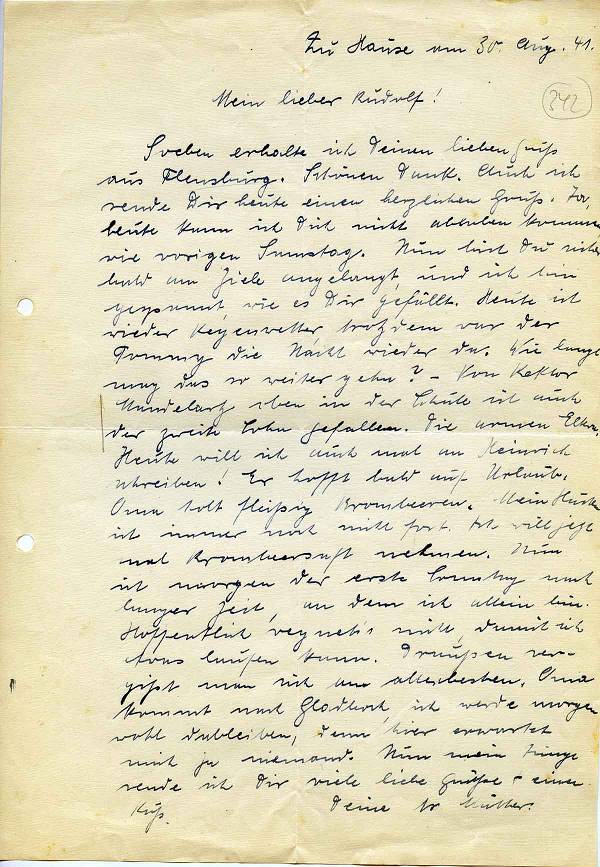 Zu Hause am 30. Aug. 41.
342
Mein lieber Rudolf!
Soeben erhalte ich Deinen lieben Gruß
aus Flensburg. Schönen Dank. Auch ich
sende Dir heute einen herzlichen Gruß. Ja,
heute kann ich Dich nicht abholen kommen
wie vorigen Samstag. Nun bist Du sicher
bald am Ziele angelangt, und ich bin
gespannt, wie es Dir gefällt. Heute ist
wieder Regenwetter trotzdem war der
Tommy die Nacht wieder da. Wie lange
mag das so weiter gehn? – Von Rektor
oben in der Schule ist auch
der zweite Sohn gefallen. Die armen Eltern.
Heute will ich auch mal an Heinrich
schreiben! Er hofft bald auf Urlaub.
Oma holt fleißig Brombeeren. Mein Husten
ist immer noch nicht fort. Ich will jetzt
mal Brombeersaft nehmen. Nun
ist morgen der erste Sonntag nach
langer Zeit, an dem ich allein bin.
Hoffentlich regnet's nicht, damit ich
etwas laufen kann. Draußen ver-
gißt man sich am allerbesten. Oma
kommt nach Gladbeck, ich werde morgen
wohl dableiben, denn hier erwartet
mich ja niemand. Nun mein Junge
sende ich Dir viele liebe Grüße + einen
Kuß. Deine Mutter.